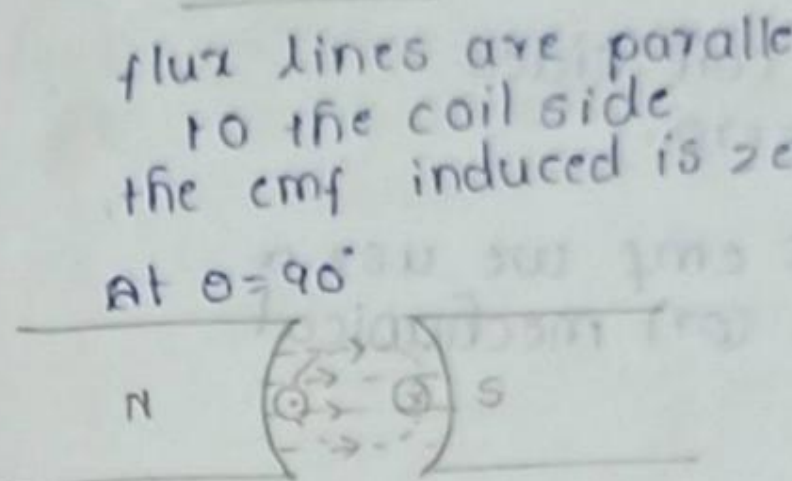 flux lines are paralle
to the coil side
the emf induced is ze
At θ=90°
N S